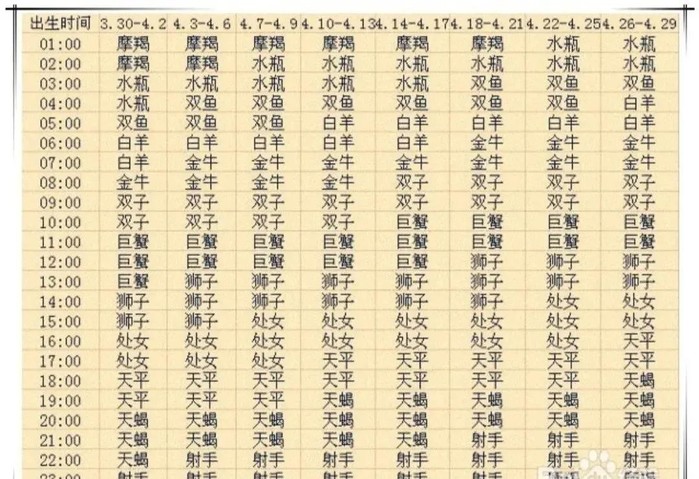 出生时间 3.30-4.2 4.3-4.6 4.7-4.9 4.10-4.13 4.14-4.17 4.18-4.21 4.22-4.25 4.26-4.29
01:00 摩羯 摩羯 摩羯 摩羯 摩羯 摩羯 水瓶 水瓶
02:00 摩羯 摩羯 水瓶 水瓶 水瓶 水瓶 水瓶 水瓶
03:00 水瓶 水瓶 水瓶 水瓶 水瓶 双鱼 双鱼 双鱼
04:00 水瓶 双鱼 双鱼 双鱼 双鱼 双鱼 双鱼 白羊
05:00 双鱼 双鱼 双鱼 白羊 白羊 白羊 白羊 白羊
06:00 白羊 白羊 白羊 白羊 白羊 金牛 金牛 金牛
07:00 白羊 金牛 金牛 金牛 金牛 金牛 金牛 金牛
08:00 金牛 金牛 金牛 金牛 双子 双子 双子 双子
09:00 双子 双子 双子 双子 双子 双子 双子 双子
10:00 双子 双子 双子 双子 巨蟹 巨蟹 巨蟹 巨蟹
11:00 巨蟹 巨蟹 巨蟹 巨蟹 巨蟹 巨蟹 巨蟹 巨蟹
12:00 巨蟹 巨蟹 巨蟹 巨蟹 巨蟹 狮子 狮子 狮子
13:00 巨蟹 狮子 狮子 狮子 狮子 狮子 狮子 狮子
14:00 狮子 狮子 狮子 狮子 狮子 狮子 处女 处女
15:00 狮子 狮子 处女 处女 处女 处女 处女 处女
16:00 处女 处女 处女 处女 处女 处女 处女 天平
17:00 处女 处女 天平 天平 天平 天平 天平 天平
18:00 天平 天平 天平 天平 天平 天平 天平 天蝎
19:00 天平 天平 天平 天蝎 天蝎 天蝎 天蝎 天蝎
20:00 天蝎 天蝎 天蝎 天蝎 天蝎 天蝎 天蝎 天蝎
21:00 天蝎 天蝎 天蝎 天蝎 天蝎 射手 射手 射手
22:00 天蝎 射手 射手 射手 射手 射手 射手 射手